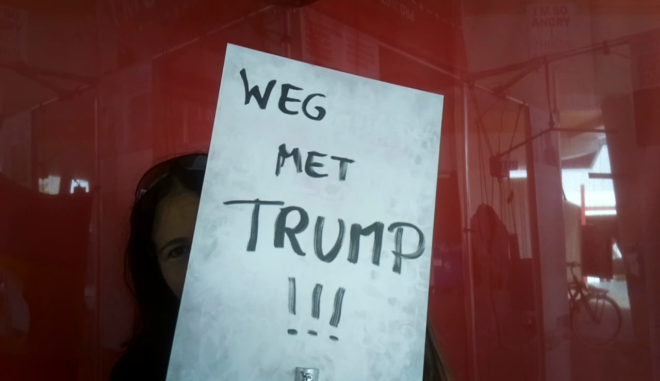 WEG
MET
TRUMP
!!!